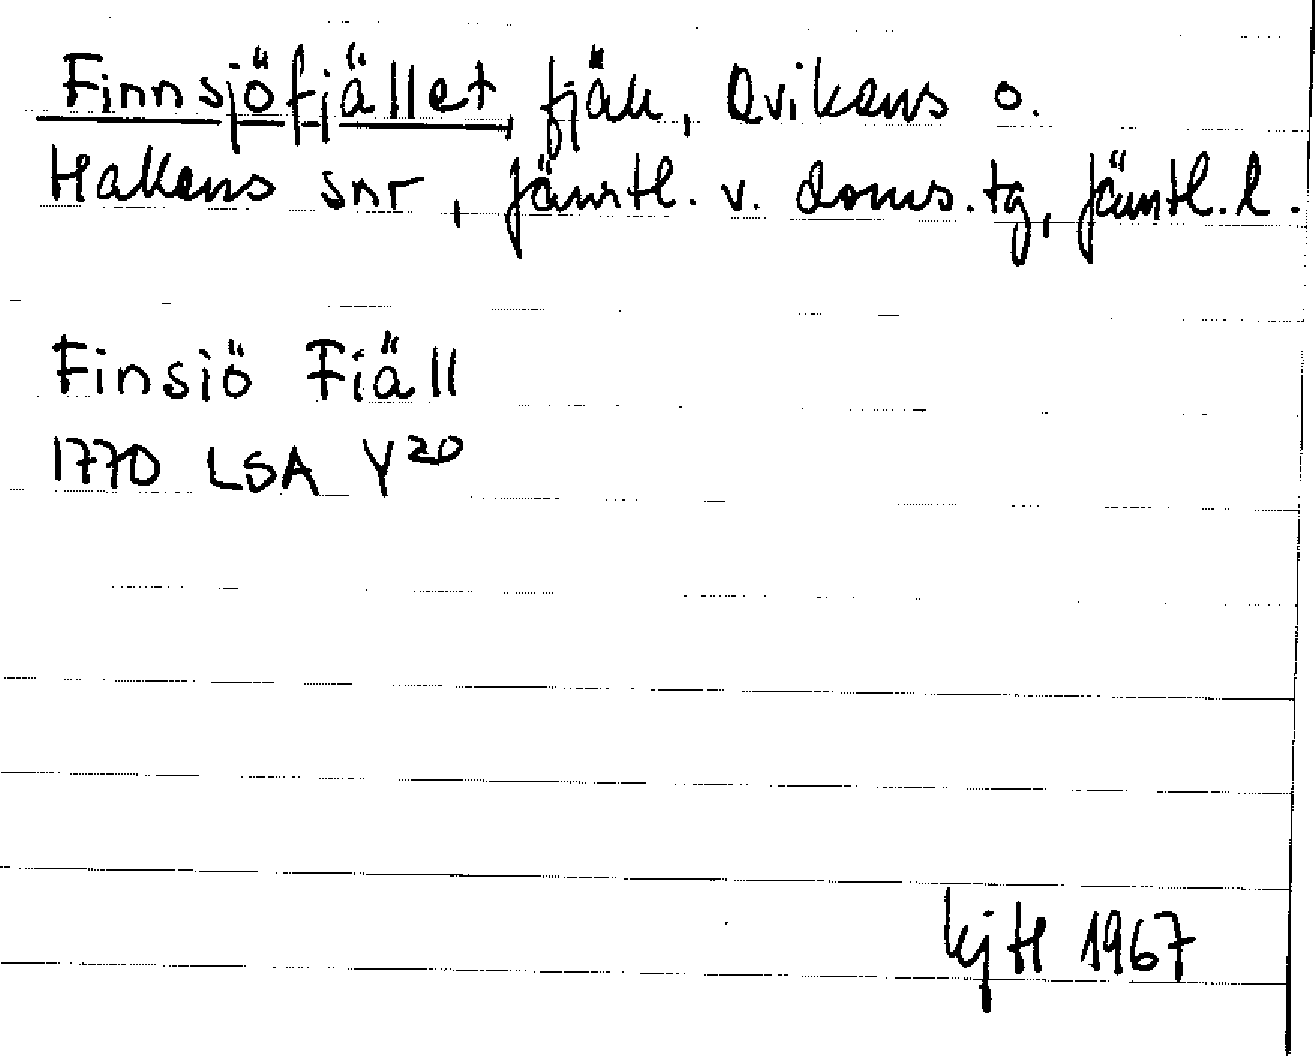 Finnsjöfjället, fjäll, Ovikens o.
Hallens snr, Jämtl. v. doms. tg, Jämtl. l.
Finsiö Fiäll
1770 LSA Y20
kjH 1967